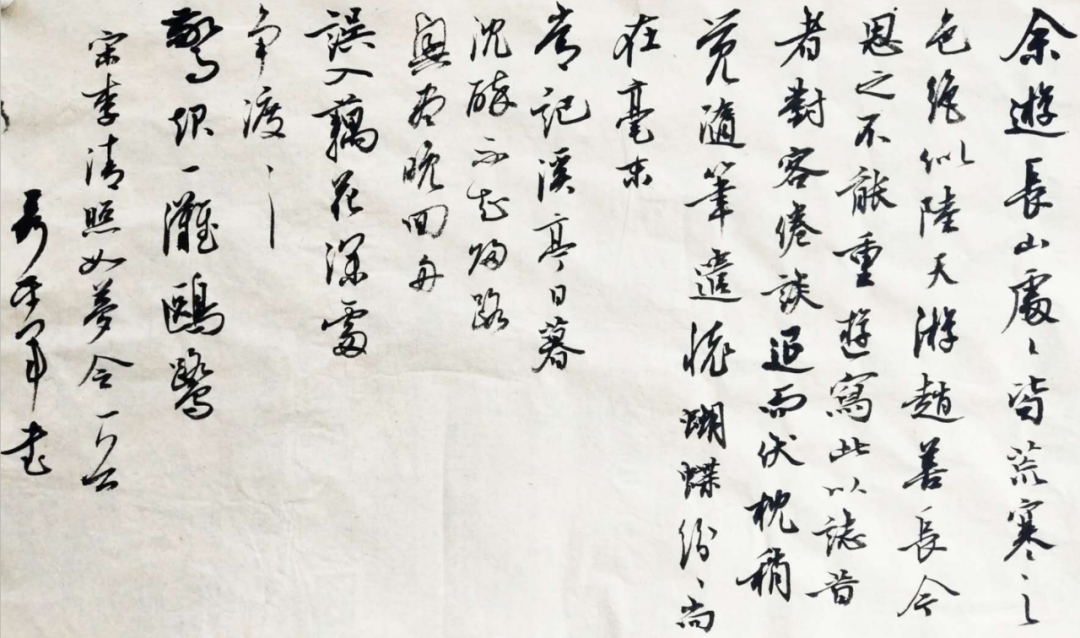 余遊長山處〻皆荒寒之
色絶似陸天游趙善長今
思之不能重遊寫此以誌昔
者對客倦談退而伏枕稍
覺隨筆遣懷蝴蝶紛〻尚
在毫末
常記溪亭日暮
沈醉不知歸路
興盡晚回舟
誤入藕花深處
争渡〻
驚起一灘鷗鷺
宋李清照如夢令一首
書